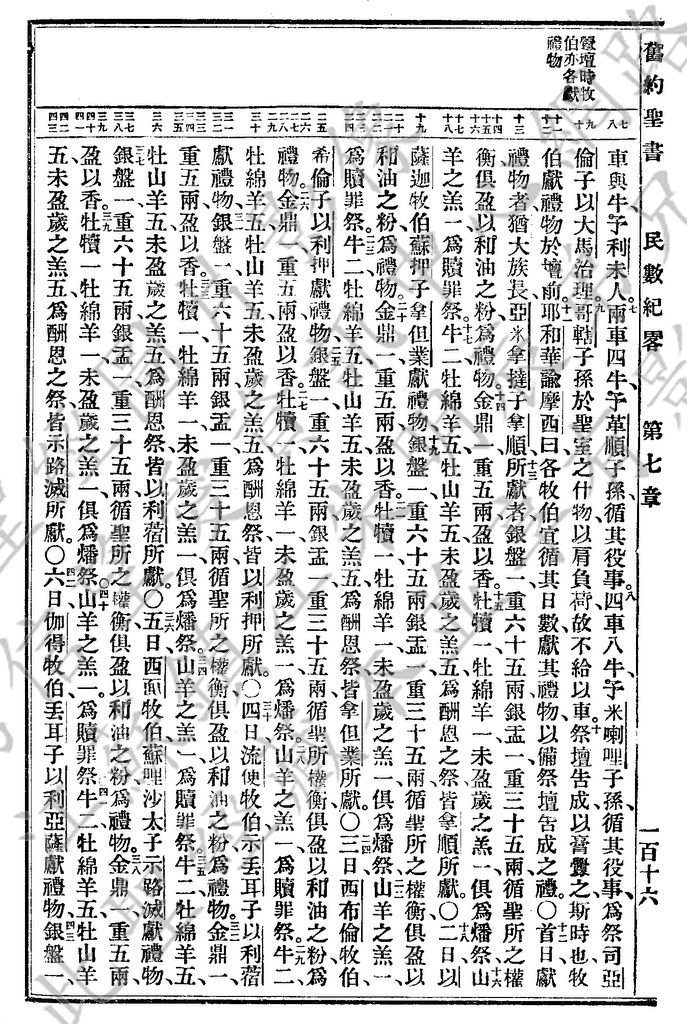 舊約聖書 民數紀畧 第七章 一百十六
釁壇時牧
伯亦各獻
禮物
車與牛予利未人兩車四牛予革順子孫循其役事四車八牛予米喇哩子孫循其役事爲祭司亞
倫子以大馬治理哥轄子孫於聖室之什物以肩負荷故不給以車祭壇告成以膏釁之斯時也牧
伯獻禮物於壇前耶和華諭摩西曰各牧伯宜循其日數獻其禮物以備祭壇告成之禮〇首日獻
禮物者猶大族長亞米拿撻子拿順所獻者銀盤一重六十五兩銀盂一重三十五兩循聖所之權
衡俱盈以和油之粉爲禮物金鼎一重五兩盈以香牡犢一牡綿羊一未盈歲之羔一俱爲燔祭山
羊之羔一爲贖罪祭牛二牡綿羊五牡山羊五未盈歲之羔五爲酬恩之祭皆拿順所獻〇二日以
薩迦牧伯蘇押子拿但業獻禮物銀盤一重六十五兩銀盂一重三十五兩循聖所之權衡俱盈以
和油之粉爲禮物金鼎一重五兩盈以香牡犢一牡綿羊一未盈歲之羔一俱爲燔祭山羊之羔一
爲贖罪祭牛二牡綿羊五牡山羊五未盈歲之羔五爲酬恩祭皆拿但業所獻〇三日西布倫牧伯
希倫子以利押獻禮物銀盤一重六十五兩銀盂一重三十五兩循聖所權衡俱盈以和油之粉爲
禮物金鼎一重五兩盈以香牡犢一牡綿羊一未盈歲之羔一爲燔祭山羊之羔一爲贖罪祭牛二
牡綿羊五牡山羊五未盈歲之羔五爲酬恩祭皆以利押所獻〇四日流便牧伯示丟耳子以利蓿
獻禮物銀盤一重六十五兩銀盂一重三十五兩循聖所之權衡俱盈以和油之粉爲禮物金鼎一
重五兩盈以香牡犢一牡綿羊一未盈歲之羔一俱爲燔祭山羊之羔一爲贖罪祭牛二牡綿羊五
牡山羊五未盈歲之羔五爲酬恩祭皆以利蓿所獻〇五日西面牧伯蘇哩沙太子示路滅獻禮物
銀盤一重六十五兩銀盂一重三十五兩循聖所之權衡俱盈以和油之粉爲禮物金鼎一重五兩
盈以香牡犢一牡綿羊一未盈歲之羔一俱爲燔祭山羊之羔一爲贖罪祭牛二牡綿羊五牡山羊
五未盈歲之羔五爲酬恩之祭皆示路滅所獻〇六日伽得牧伯丟耳子以利亞薩獻禮物銀盤一